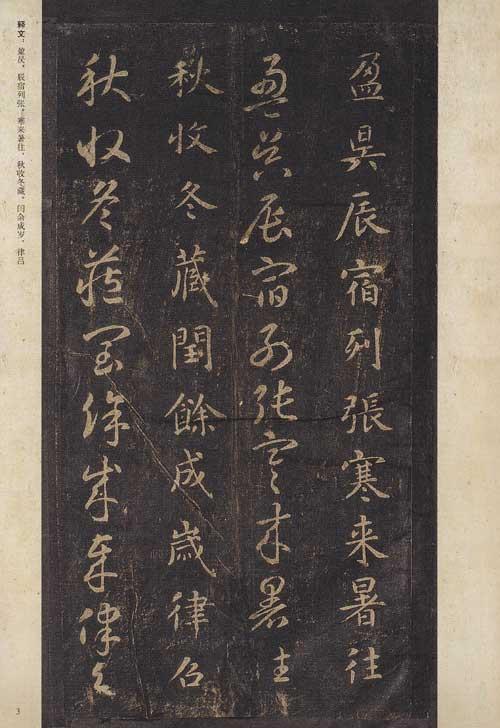 盈昃辰宿列張寒来暑往
盈昃辰宿列張寒来暑往
秋收冬藏閏餘成歲律召
秋收冬藏閏餘成歲律召
释文：盈昃，辰宿列张。寒来暑往，秋收冬藏。闰余成岁，律吕
3